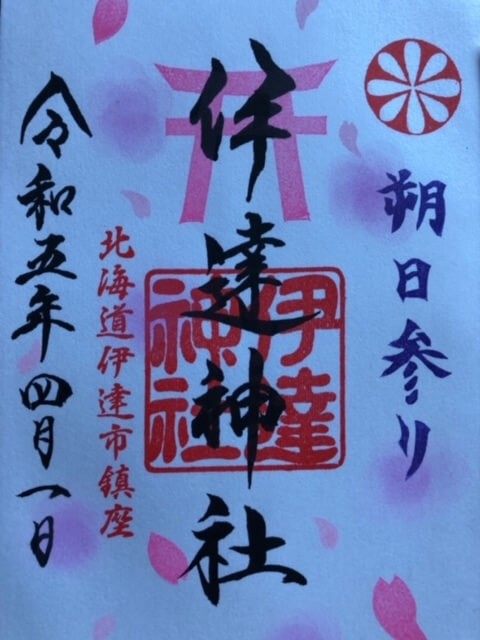 朔日参り
伊達神社
伊達
神社
北海道伊達市鎮座
令和五年四月一日